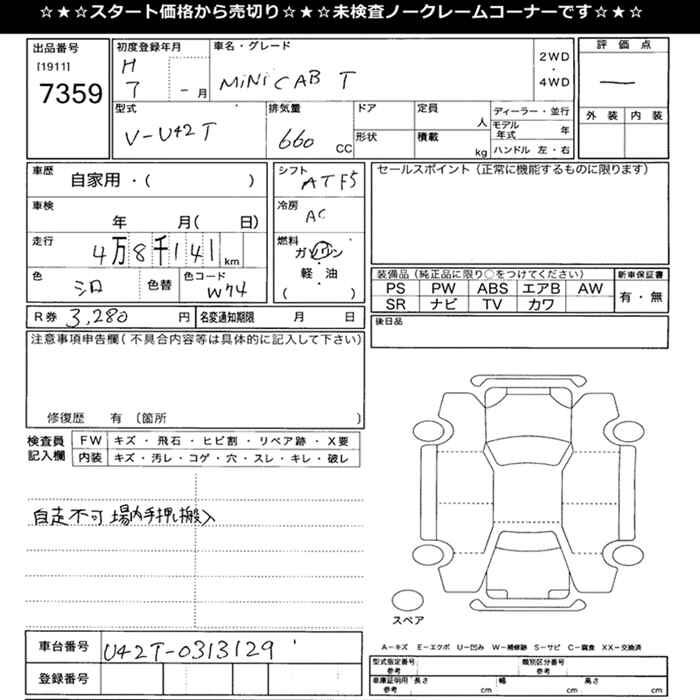 ☆★☆スタート価格から売切り☆★☆未検査ノークレームコーナーです☆★☆
出品番号
[1911]
7359
初度登録年月
H
7 - 月
車名・グレード
MINICAB T
2WD
・
4WD
評価点
—
外装 内装
型式
V-U42T
排気量
660 CC
ドア
形状
定員
人
積載
kg
ディーラー・並行
モデル年式 年
ハンドル 左・右
車歴
自家用・( )
車検
年 月( 日)
走行
4万8千141km
色
シロ
色替
色コード
W74
シフト
ATF5
冷房
AC
燃料
ガソリン
・
軽油
・
( )
セールスポイント(正常に機能するものに限ります)
装備品(純正品に限り○をつけてください)
PS PW ABS エアB AW
SR ナビ TV カワ
新車保証書
有・無
後日品
R券 3,280 円
名変通知期限 月 日
注意事項申告欄(不具合内容等は具体的に記入して下さい)
修復歴 有 〔箇所 〕
検査員
記入欄
FW キズ・飛石・ヒビ割・リペア跡・X要
内装 キズ・汚レ・コゲ・穴・スレ・キレ・破レ
自走不可 場内手押し搬入
スペア
A-キズ E-エクボ U-凹み W-補修跡 S-サビ C-腐食 XX-交換済
車台番号
U42T-0313129
登録番号
型式指定番号
参考
類別区分番号
参考
車庫証明用
参考
長さ cm
幅 cm
高さ cm